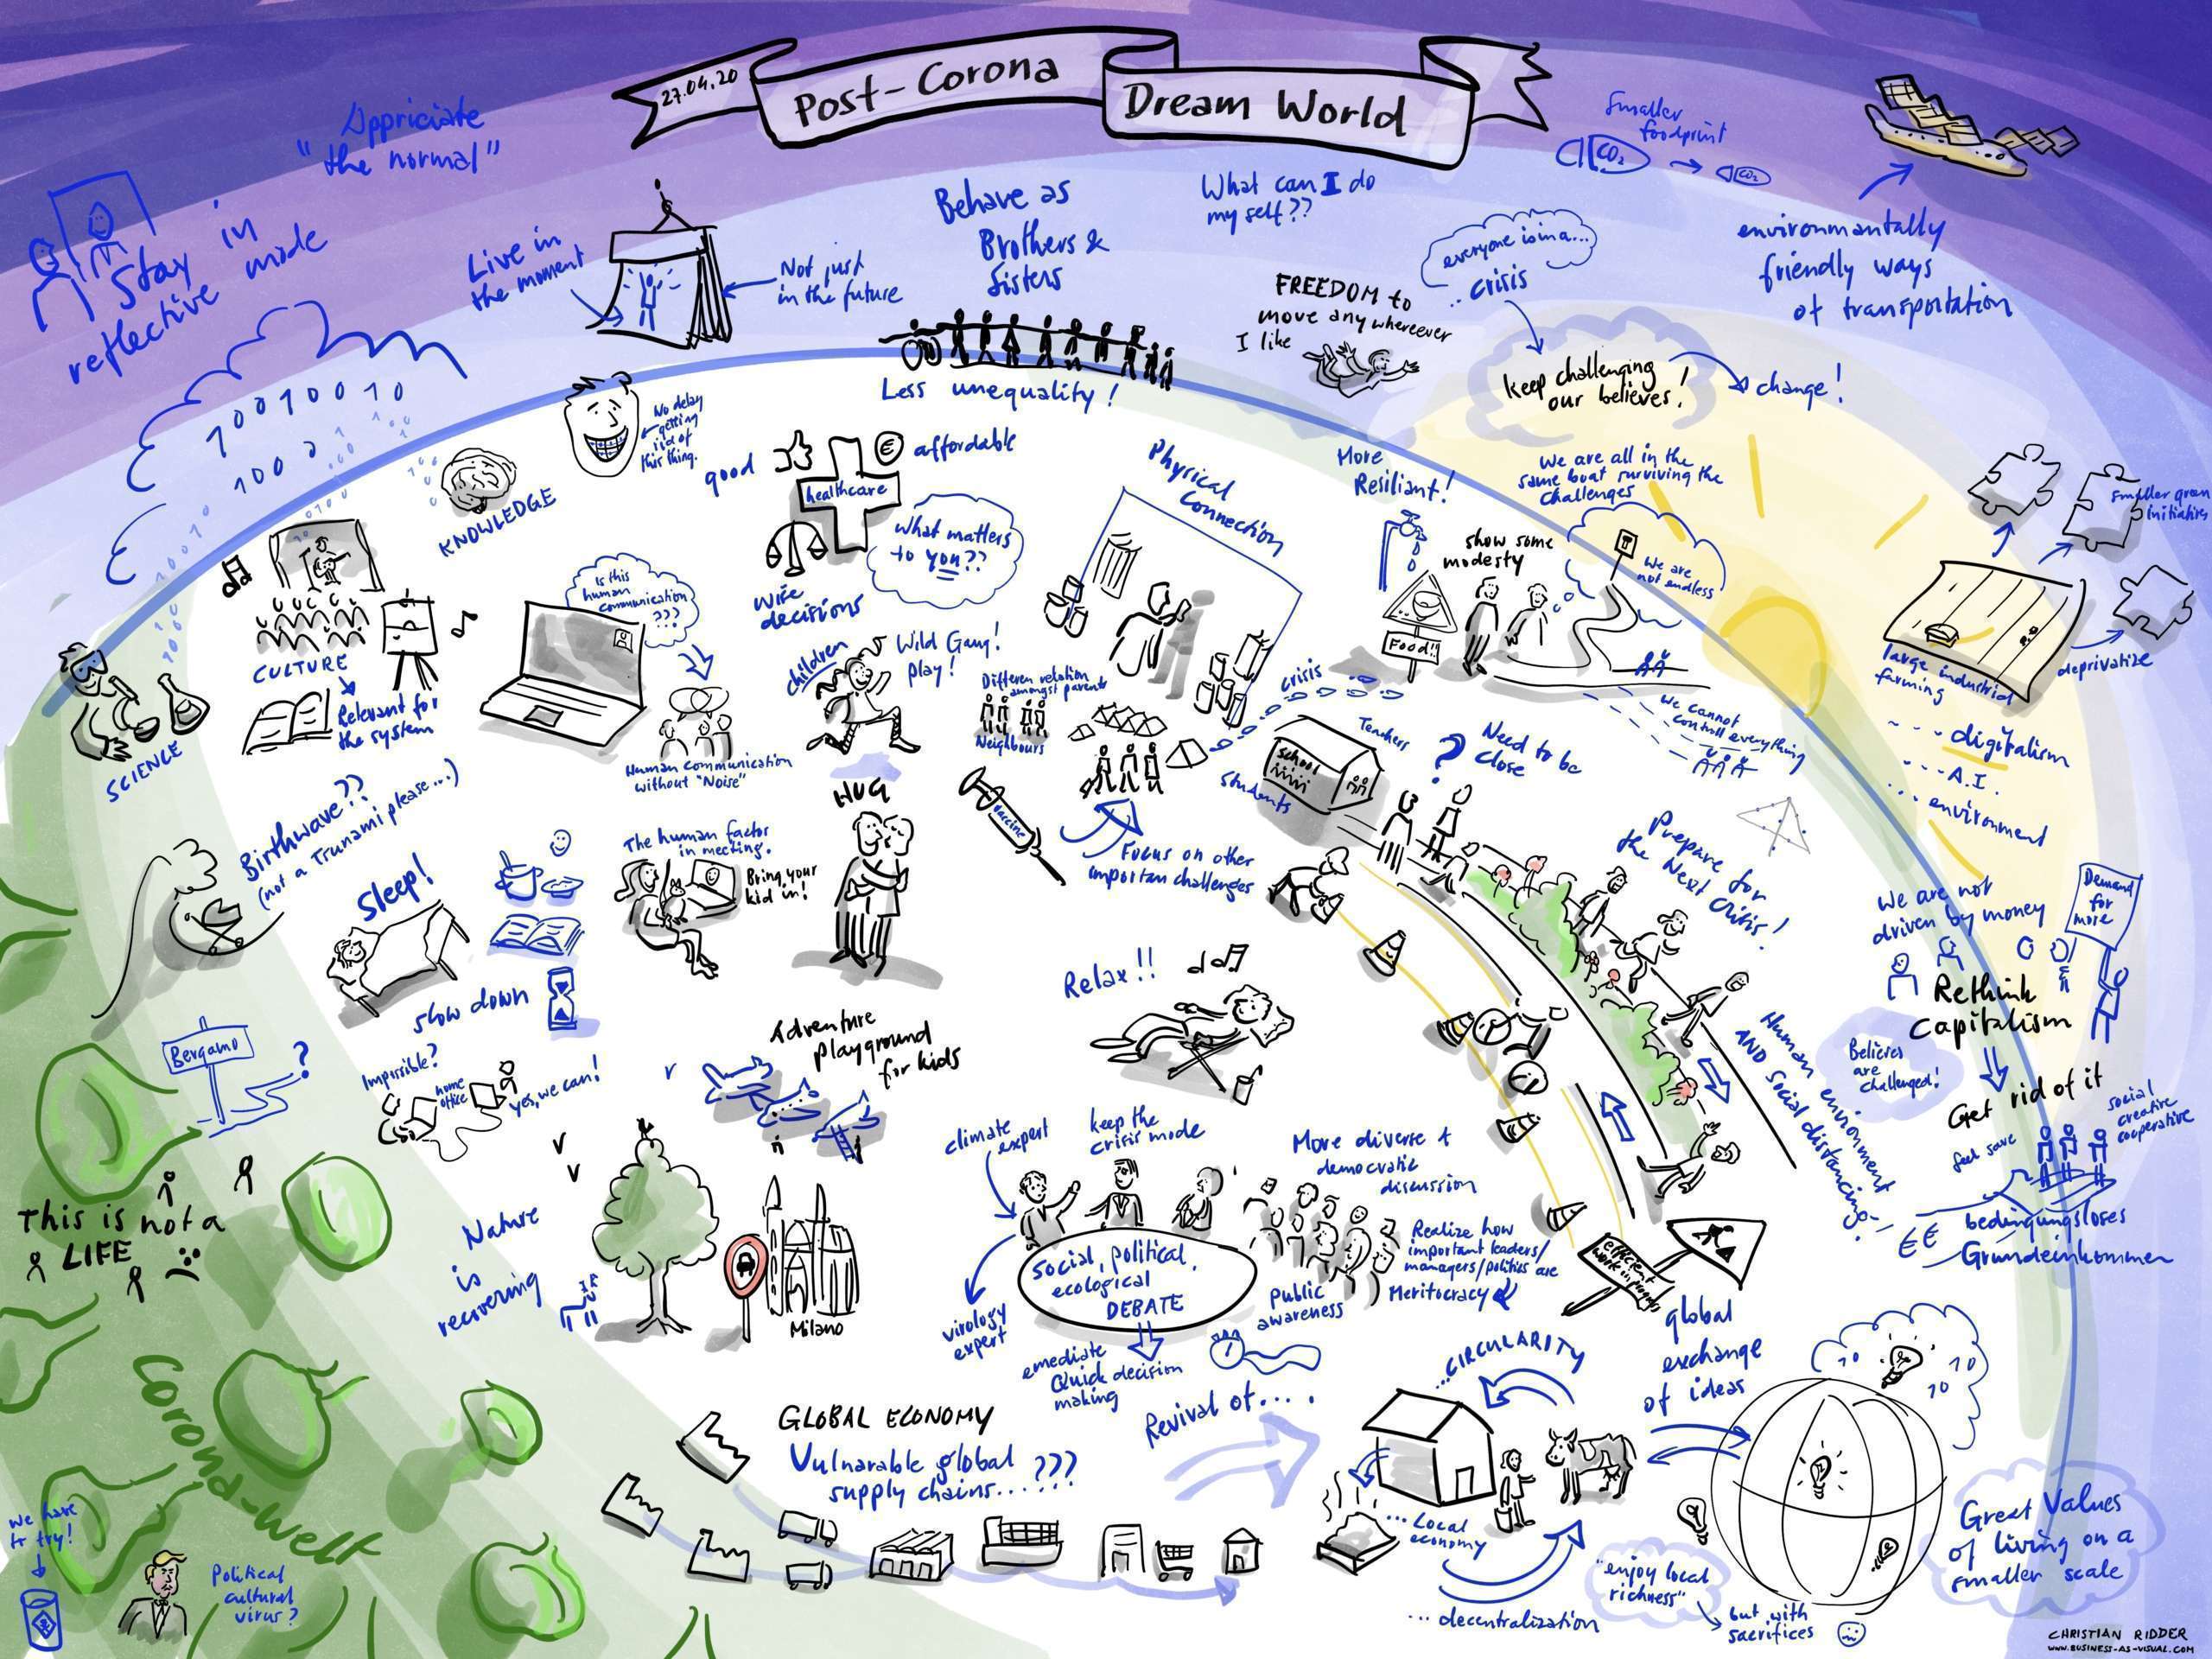 27.04.20
Post-Corona
Dream World
Appriciate
"the normal"
Stay in
reflective mode
Live in
the moment
Not just
in the future
Behave as
Brothers &
Sisters
Less unequality!
What can I do
my self??
FREEDOM to
move anywhereever
I like
everyone is in a...
.. crisis
keep challenging
our believes!
change!
Smaller
foodprint
CO2
CO2
environmentally
friendly ways
of transportation
1001001 0
100
KNOWLEDGE
No delay
getting
rid of
this thing.
good
affordable
€
healthcare
What matters
to you??
wise
decisions
Physical
Connection
More
Resiliant!
We are all in the
same boat surviving the
challenges
show some
modesty
We are
not endless
Food!!
we cannot
controll everything
Smaller green
initiatives
large industrial
farming
deprivatize
... digitalism
... A.I.
... environment
SCIENCE
CULTURE
Relevant for
the system
Is this
human
communication
???
Human communication
without "Noise"
children
Wild Gang!
Play!
Differen relation
amongst parents
Neighbours
crisis
school
Teachers
students
Need to be
close
?
vaccine
Focus on other
importan challenges
Prepare for
the Next Crisis!
Birthwave??
(not a Trunami please...)
Sleep!
slow down
The human factor
in meeting.
Bring your
kid in!
HUG
Relax!!
We are not
driven by money
Demand
for
more
Rethink
capitalism
Believes
are
challenged!
Get rid of it
feel save
social
creative
cooperative
bedingungsloses
Grundeinkommen
€€
Human environment
AND social distancing
Bergamo
?
Impossible?
home
office
yes, we can!
Adventure
playground
for kids
This is not a
LIFE
Nature
is
recovering
Milano
climate
expert
keep the
crisis mode
virology
expert
social, political,
ecological
DEBATE
emediate
Quick decision
making
More diverse &
democratic
discussion
Public
awareness
Realize how
important leaders/
managers/politics are
Meritocracy
efficient
work in progress
global
exchange
of ideas
10
10
10
Corona-Welt
we have
to try!
Political
cultural
virus?
GLOBAL ECONOMY
Vulnarable global
supply chains...???
Revival of....
...CIRCULARITY
...Local
economy
...decentralization
"enjoy local
richness"
but with
sacrifices
Great Values
of living on a
smaller scale
CHRISTIAN RIDDER
WWW.BUSINESS-AS-VISUAL.COM